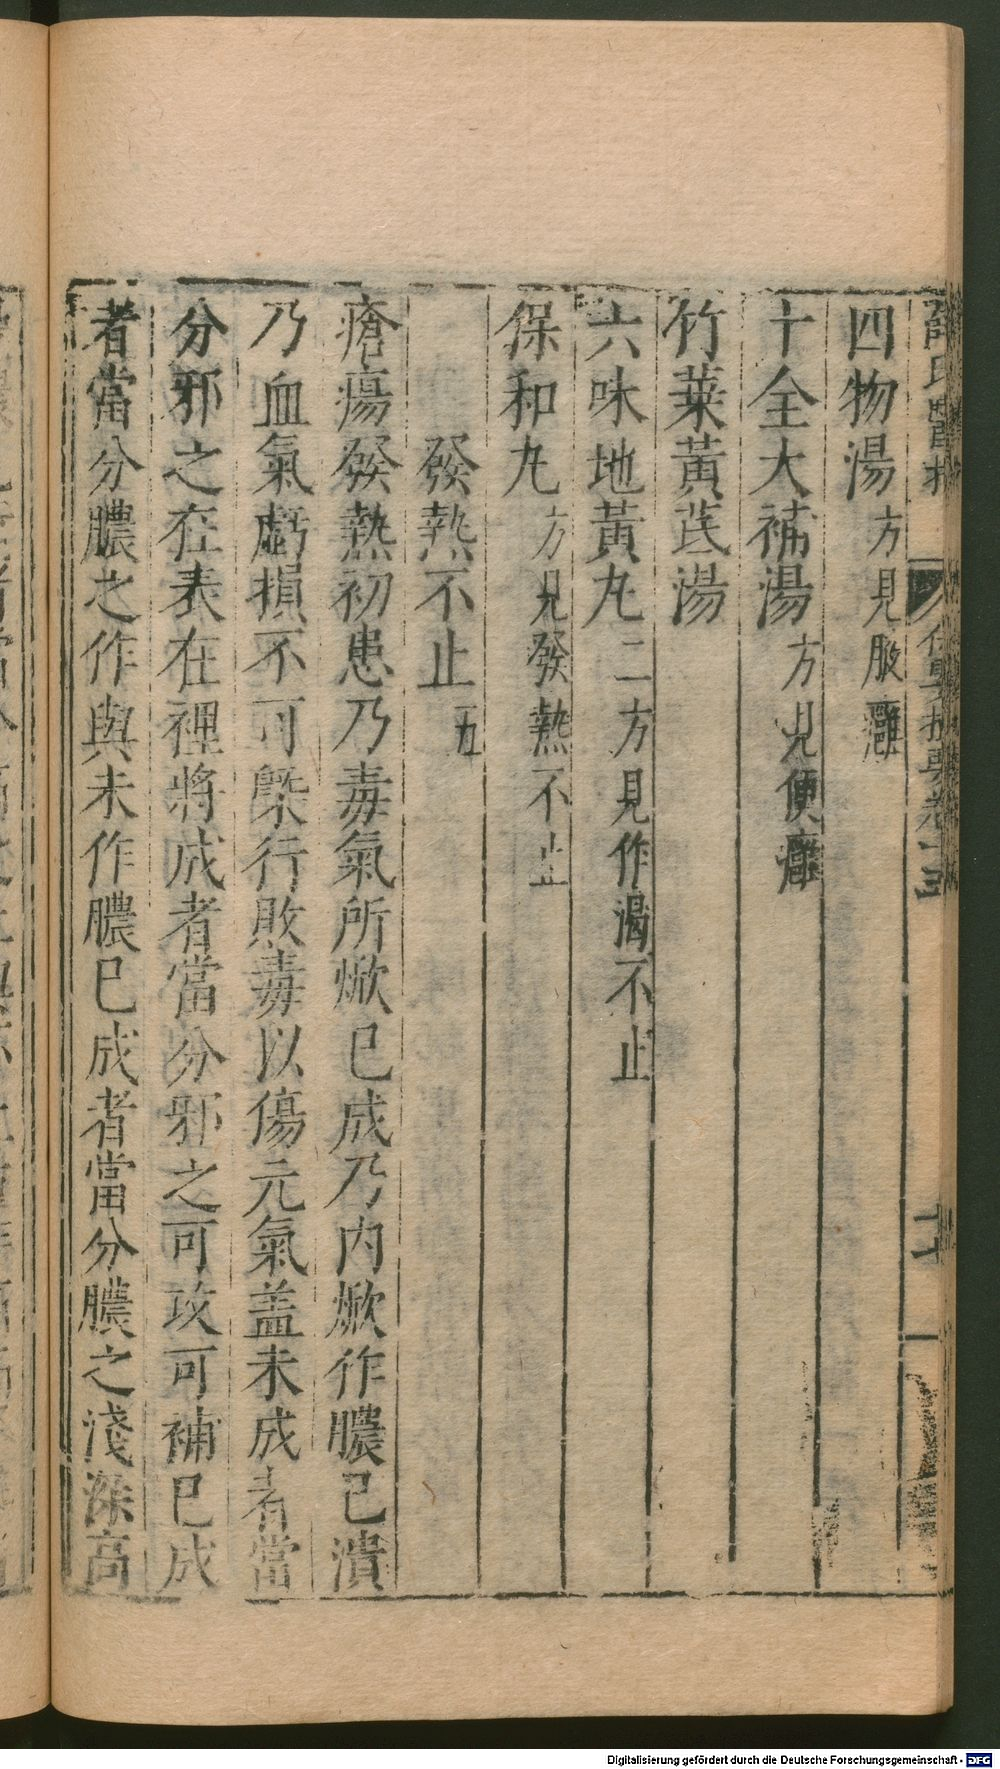 四物湯方見服癰
十全大補湯方見便癰
竹葉黃芪湯
六味地黃丸二方見作渴不止
保和丸方見發熱不止
發熱不止五
瘡瘍發熱初患乃毒氣所焮已成乃內焮作膿已潰
乃血氣虧損不可槩行敗毒以傷元氣盖未成者當
分邪之在表在裡將成者當分邪之可攻可補已成
者當分膿之作與未作膿已成者當分膿之淺深高
Digitalisierung gefördert durch die Deutsche Forschungsgemeinschaft - DFG